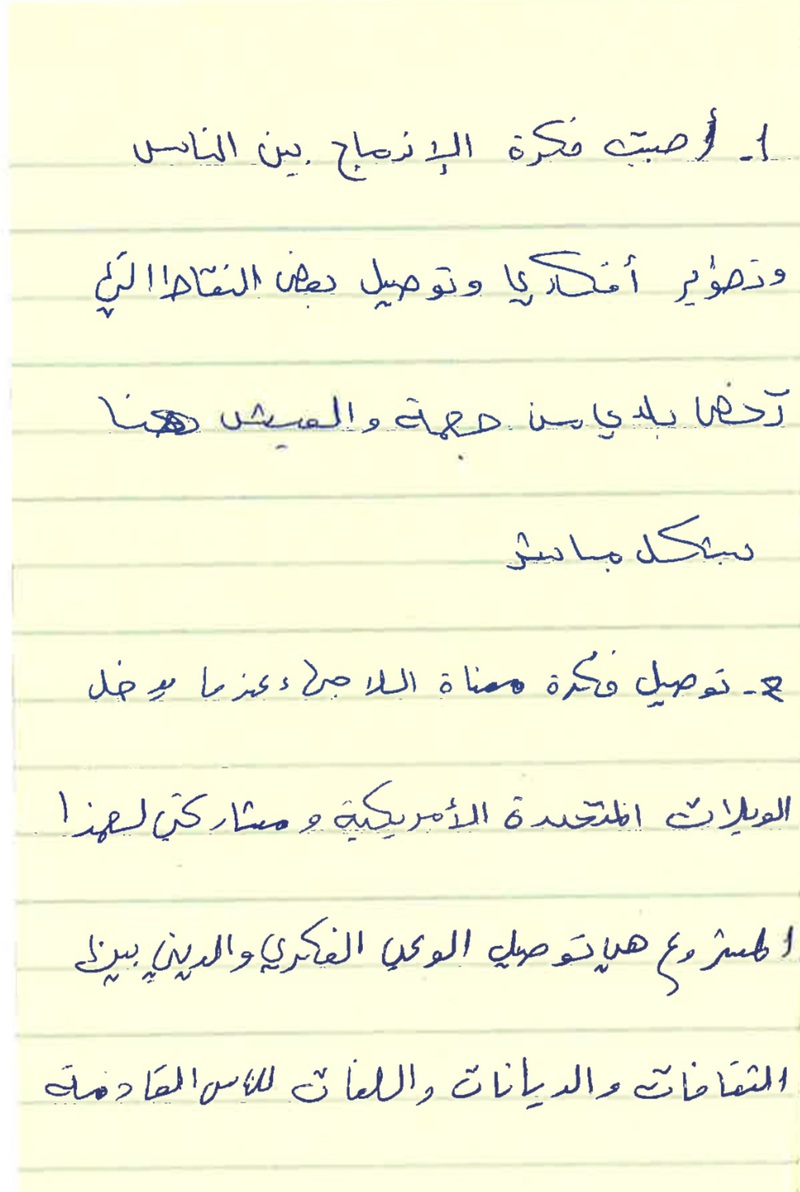 1- أحببت فكرة الإندماج بين الناس
وتطوير أفكاري وتوصيل بعض النقاط التي
تخص بلدي من جهة والعيش هنا
بشكل مباشر
2- توصيل فكرة معناة اللاجئ عندما يدخل
الويلات المتحدة الأمريكية ومشاركتي لهذا
المشروع هي توصيل الوعي الفكري والديني بين
الثقافات والديانات واللغات للناس القادمة